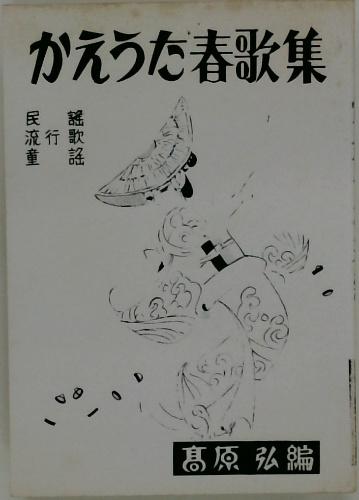 かえうた春歌集
民謡
流行歌
童謡
髙原弘編